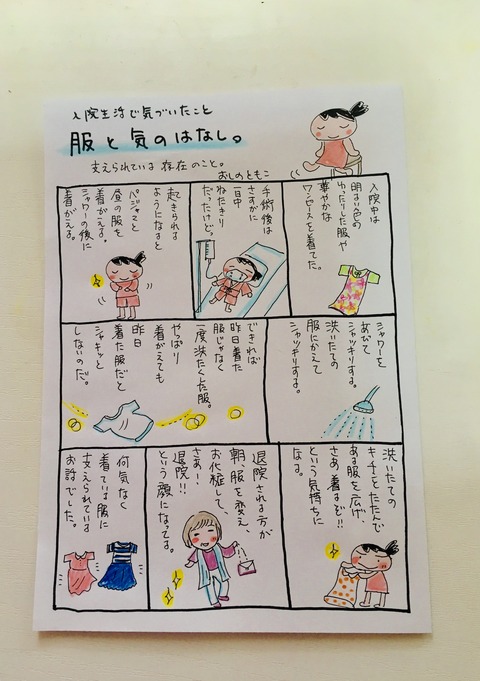 入院生活で気づいたこと
服と気のはなし。
支えられている存在のこと。
おしのともこ
入院中は
明るい色の
ゆったりした服や
華やかな
ワンピースを着てた。
手術後は
さすがに
一日中
ねたきり
だったけど。
起きられる
ようになると
パジャマと
昼の服を
着がえる。
シャワーの後に
着がえる。
シャワーを
あびて
シャッキリする。
洗いたての
服にかえて
シャッキリする。
できれば
昨日着た
服じゃなく
一度洗たくした服。
やっぱり
着がえても
昨日
着た服だと
シャキッと
しないのだ。
洗いたての
キチッとたたんで
ある服を広げ、
さあ着るぞ!!
という気持ちに
なる。
退院される方が
朝、服を変え、
お化粧して、
さあー、
退院!!
という顔になってる。
何気なく
着ている服に
支えられている
お話でした。